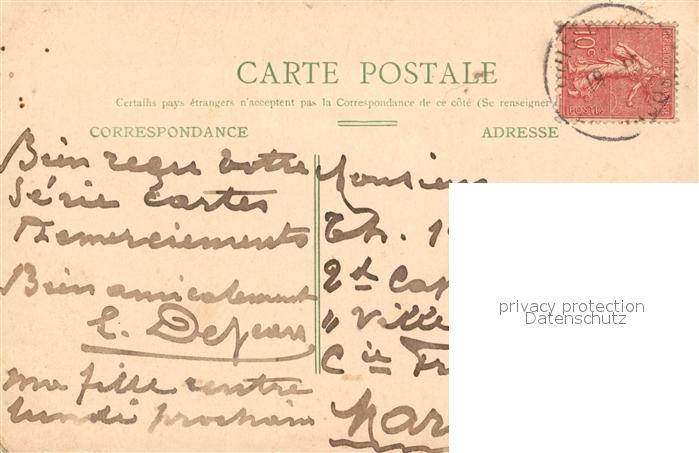 CARTE POSTALE
Certains pays étrangers n'acceptent pas la Correspondance de ce côté (Se renseigner
CORRESPONDANCE
ADRESSE
Bien reçu votre
Série Cartes
Remerciements
Bien amicalement
E. Dejean
ma fille rentre
lundi prochain
Monsieur
Th.
2d Cap
" Ville
Cie Fr
Mar
10c
POSTES
privacy protection
Datenschutz